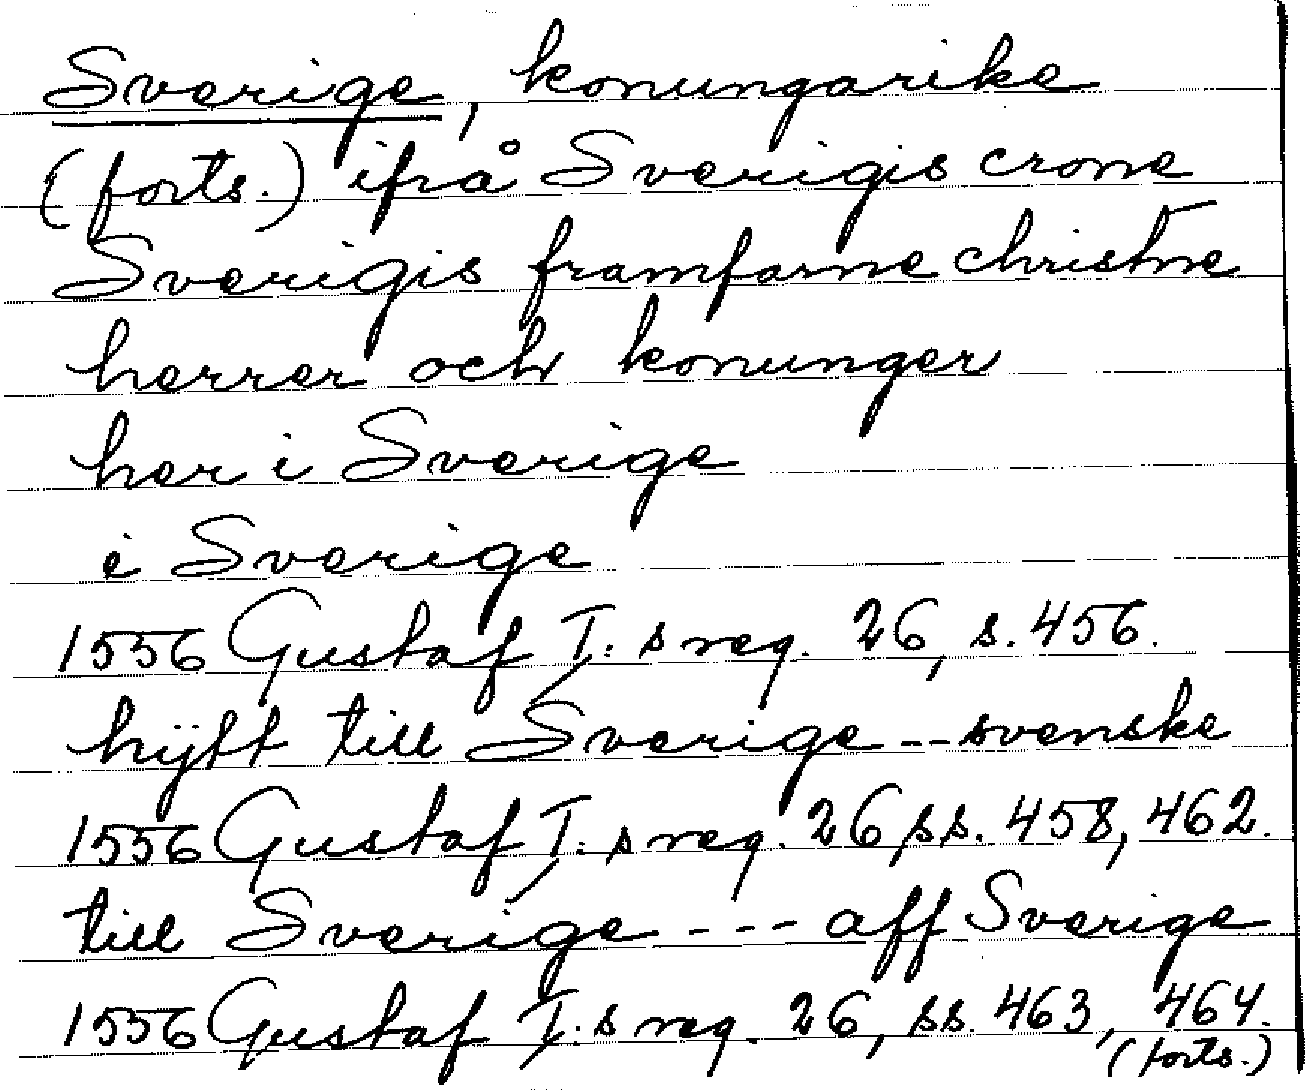 Sverige, konungarike
(forts.) ifrå Sverigis crone
Sverigis framfarne christne
herrer och konunger
her i Sverige
i Sverige
1556 Gustaf I:s reg. 26, s. 456.
hijtt till Sverige -- svenske
1556 Gustaf I:s reg. 26, ss. 458, 462.
till Sverige --- aff Sverige
1556 Gustaf I:s reg. 26, ss. 463, 464.
(forts.)